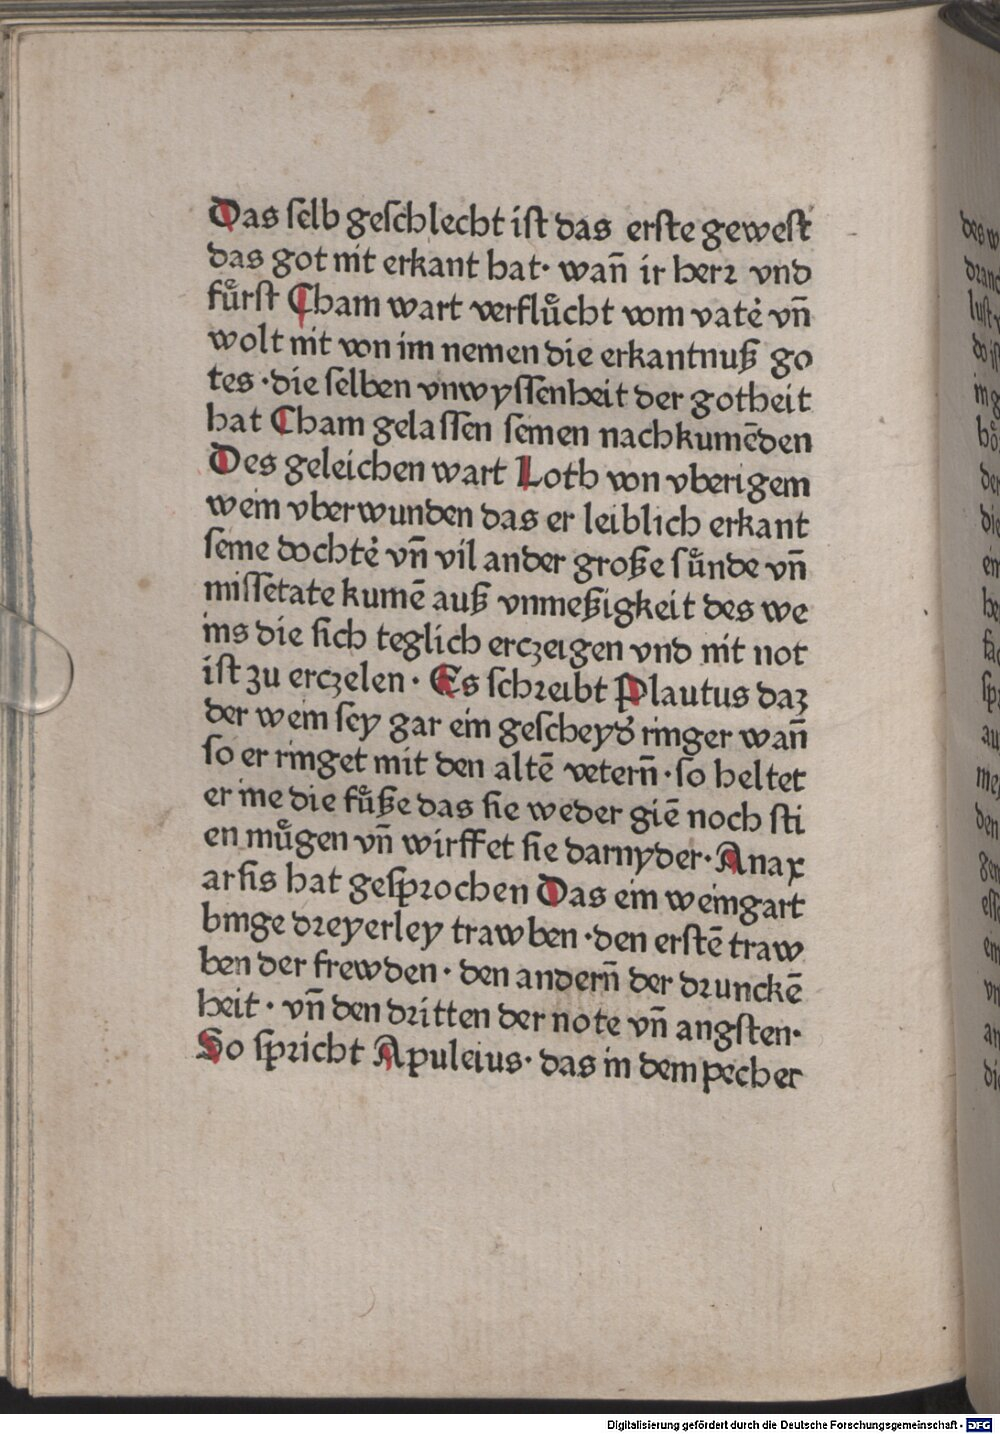 Das ſelb geſchlecht iſt das erſte geweſt
das got nit erkant hat· wañ ir herꝛ vnd
fuͤrſt Cham wart verfluͤcht vom vatė vñ
wolt nit von im nemen die erkantnuß go
tes ·die ſelben vnwyſſenheit der gotheit
hat Cham gelaſſen ſeinen nachkumēden
Des geleichen wart Loth von vberigem
wein vberwunden das er leiblich erkant
ſeine dochtė vñ vil ander große ſuͤnde vñ
miſſetate kumē auß vnmeßigkeit des we
ins die ſich teglich erczeigen vnd nit not
iſt zu erczelen· Es ſchꝛeibt Plautus daz
der wein ſey gar ein geſcheyd̓ ringer wañ
ſo er ringet mit den altē veterñ·ſo heltet
er ine die fuͤße das ſie weder giē noch ſti
en muͤgen vñ wirffet ſie darnyder·Anax
arſis hat geſpꝛochen Das ein weingart
bringe dꝛeyerley trawben ·den erſtē traw
ben der frewden· den anderñ der dꝛunckē
heit· vñ den dꝛitten der note vñ angſten·
So ſpꝛicht Apuleius· das in dem pecher
Digitalisierung gefördert durch die Deutsche Forschungsgemeinschaft - DFG